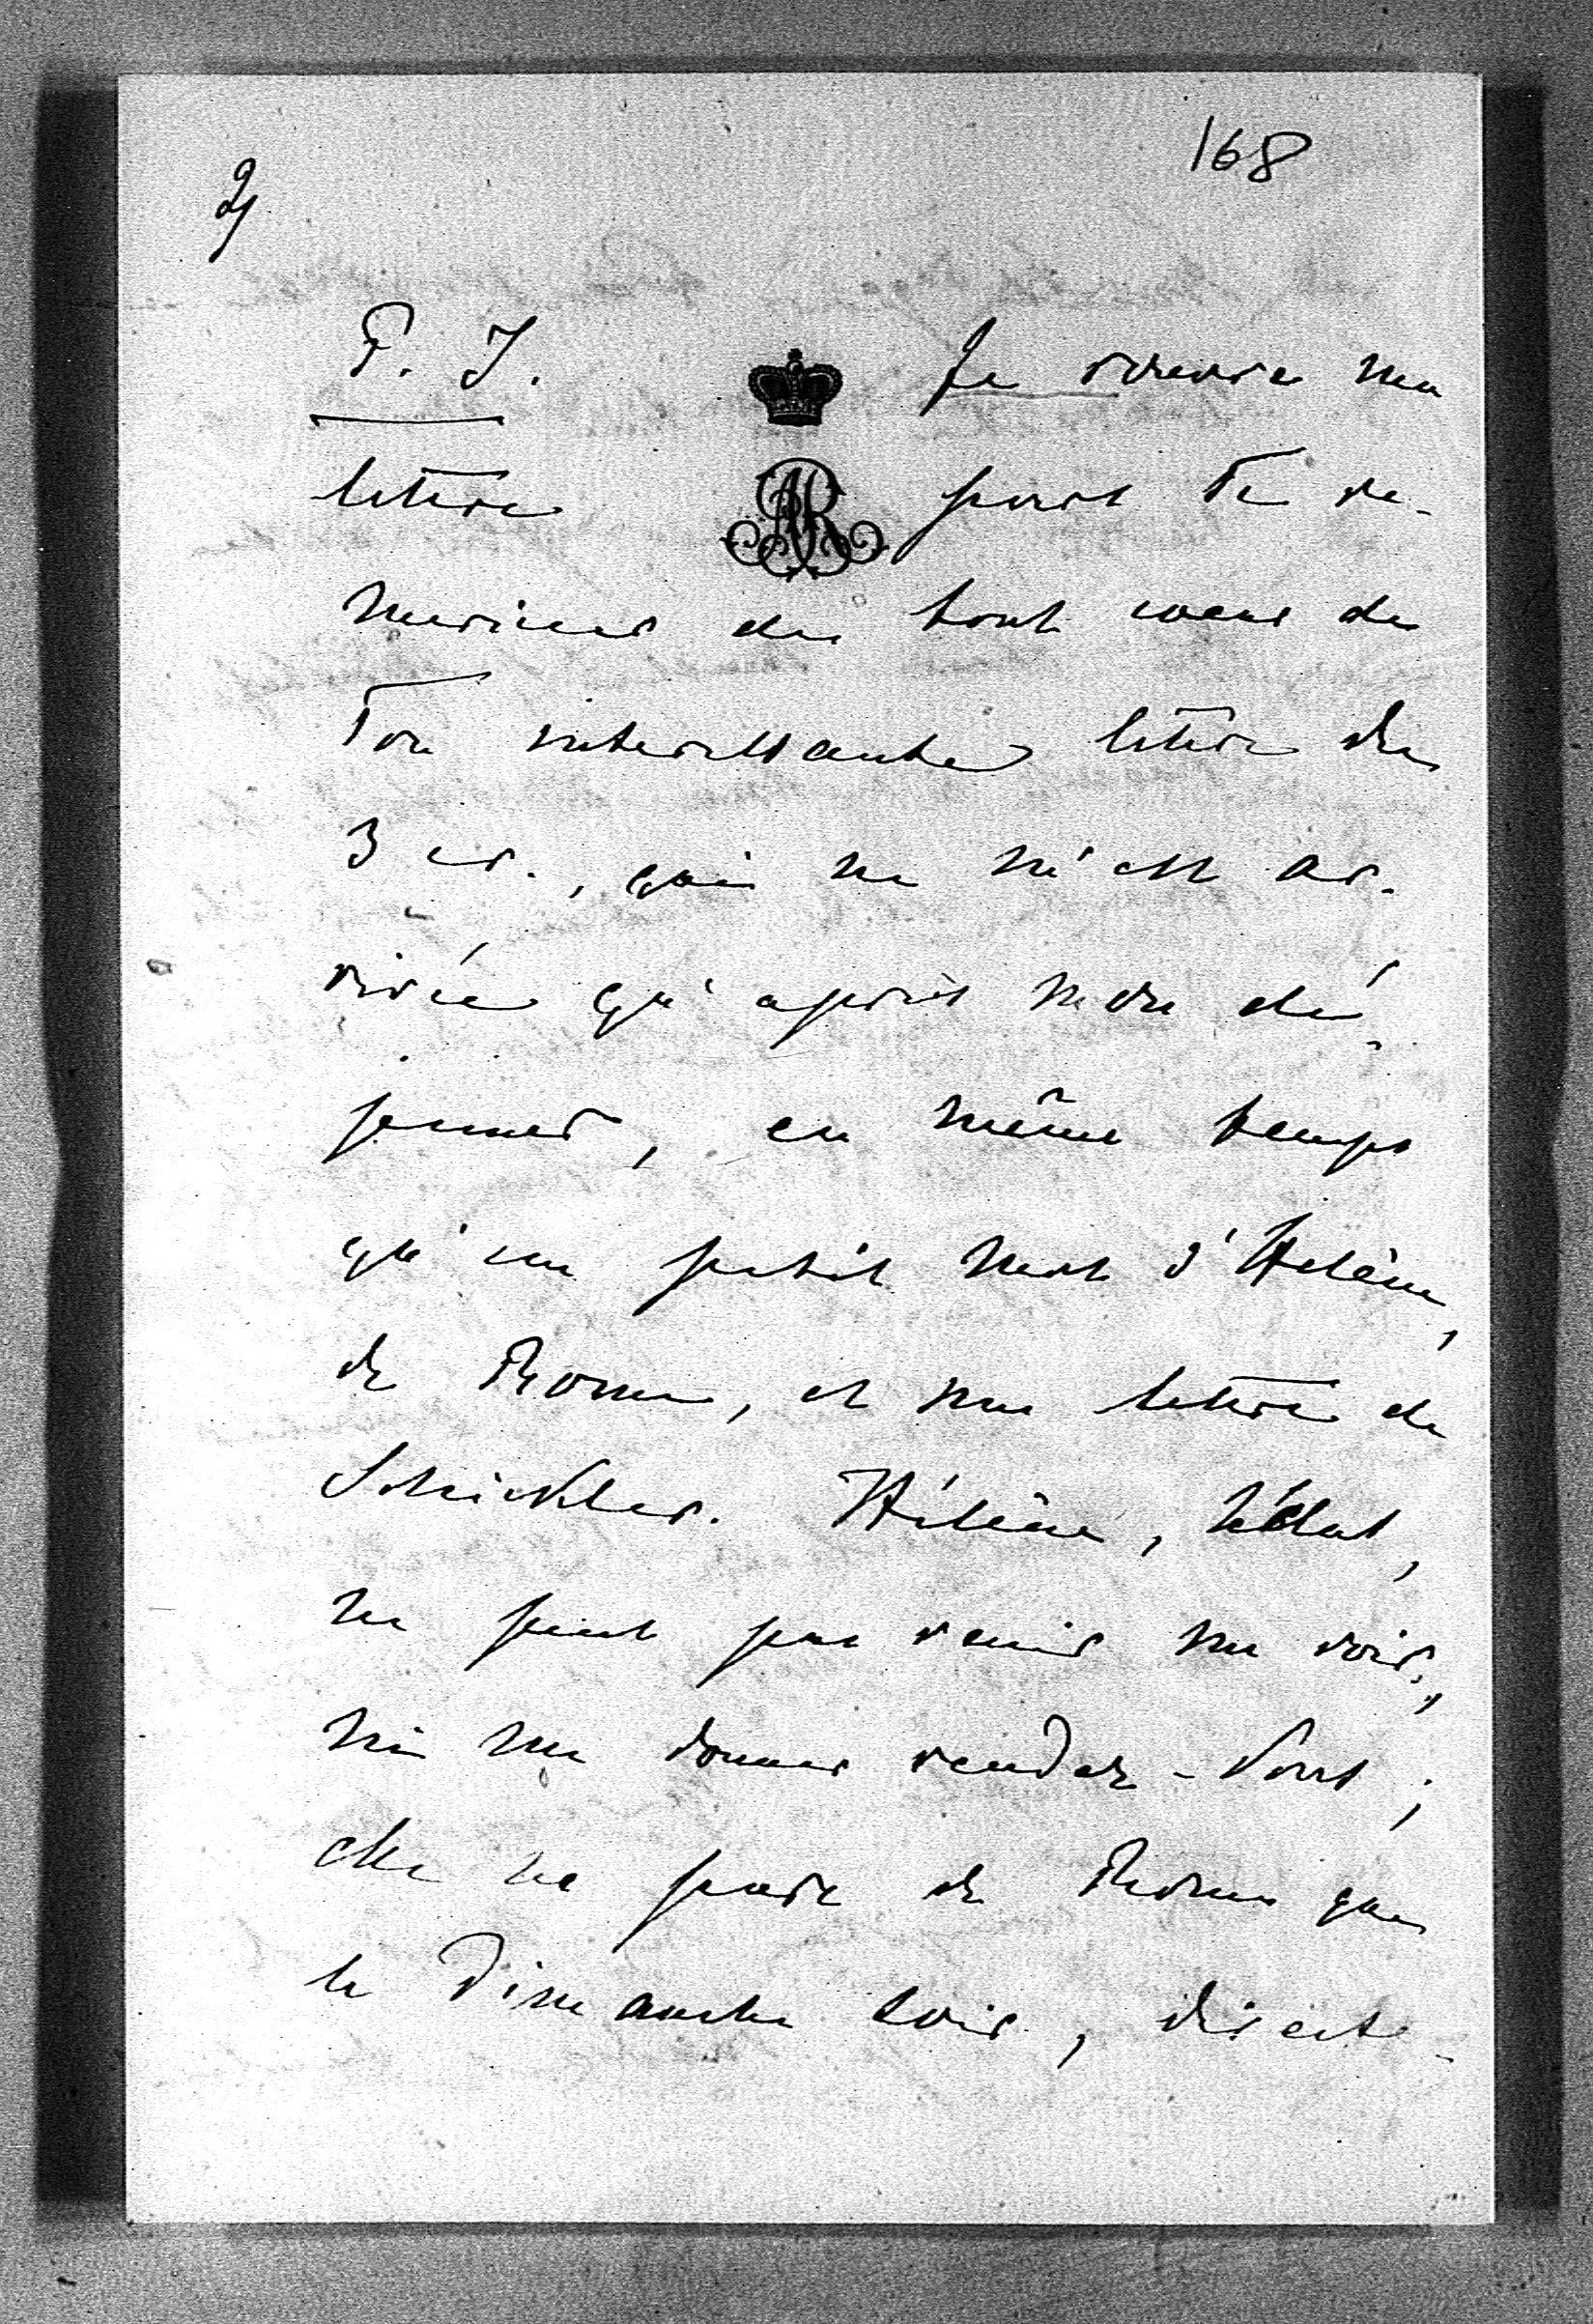 168
2/
P. S. Je rouvre ma
lettre pour Te re-
mercier de tout coeur de
Ton intéressante lettre du
3 cr., qui ne m'est ar-
rivée qu'après mon dé-
jeuner, en même temps
qu'un petit mot d'Hélène,
de Rome, et une lettre de
Schickler. Hélène, hélas,
ne peut pas venir me voir,
ni me donner rendez-vous;
elle ne part de Rome que
le Dimanche soir, directe-